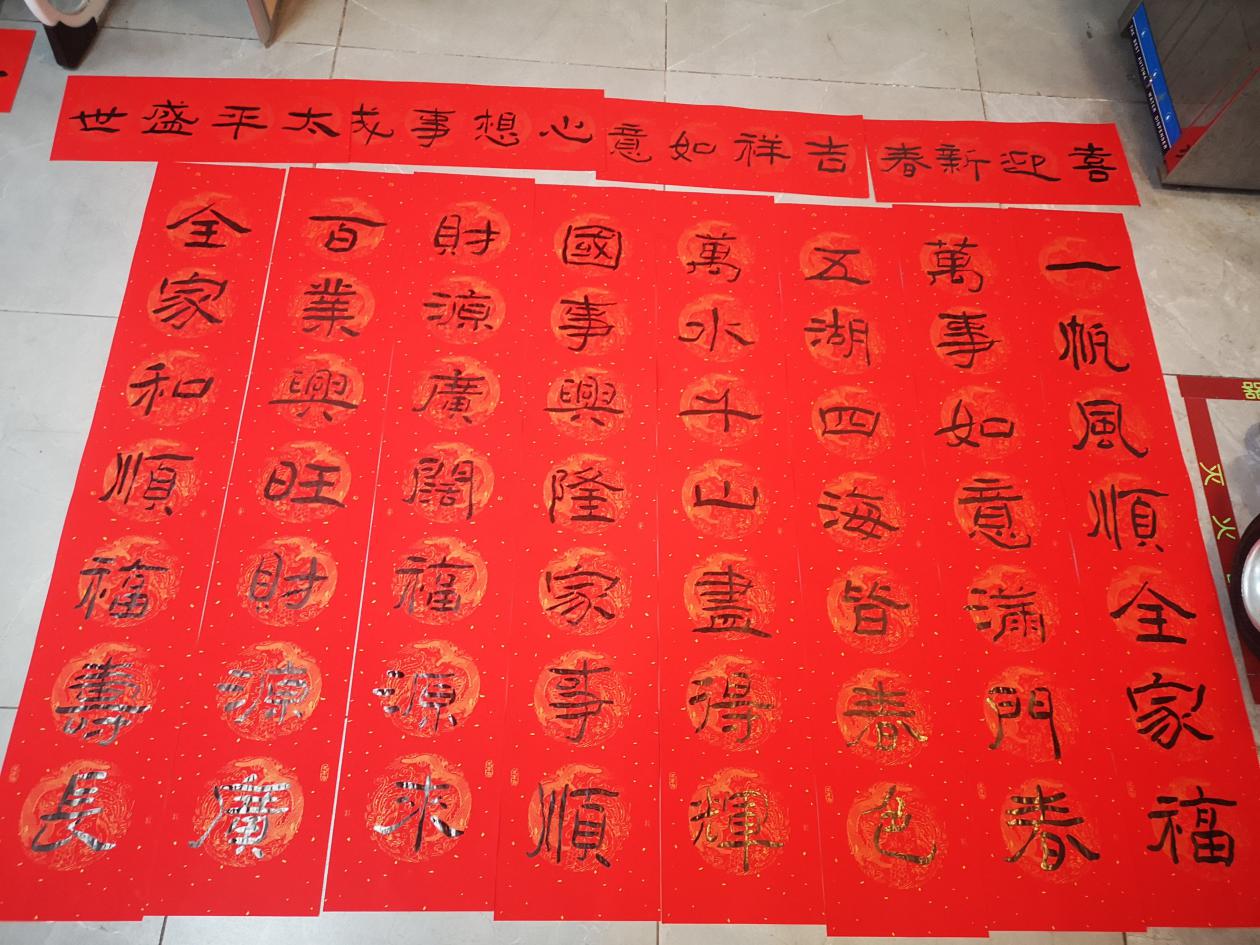 喜迎新春
吉祥如意
心想事成
太平盛世
一帆風順全家福
萬事如意滿門春
五湖四海皆春色
萬水千山盡得輝
國事興隆家事順
財源廣闊福源來
百業興旺財源廣
全家和順福壽長
灭火器